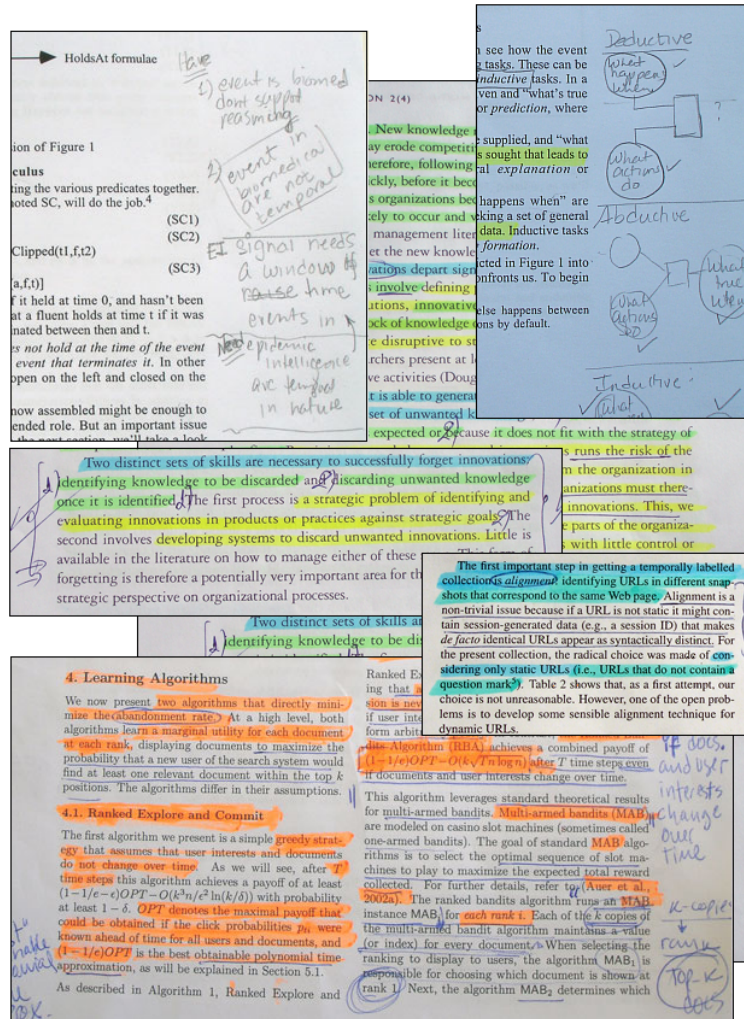 HoldsAt formulae
ion of Figure 1
culus
ting the various predicates together.
noted SC, will do the job.4
(SC1)
(SC2)
Clipped(t1,f,t2)
(SC3)
[a,f,t)]
f it held at time 0, and hasn't been
at a fluent holds at time t if it was
nated between then and t.
s not hold at the time of the event
event that terminates it. In other
open on the left and closed on the
now assembled might be enough to
ended role. But an important issue
Have
1) event is biomed
dont support
reasoning
2) event in
biomedical
are not
temporal
EI signal needs
a window of
time
events in
Need epidemic
intelligence
are temporal
in nature
ON 2(4)
. New knowledge
ay erode competiti
herefore, following
ickly, before it beco
s organizations bec
ely to occur and v
management liter
et the new knowle
vations depart sign
s involve defining p
utions, innovative
ock of knowledge
e disruptive to st
rchers present at l
ve activities (Doug
t is able to genera
set of unwanted k
expected or because it does not fit with the strategy of
s runs the risk of the
m the organization in
anizations must there-
innovations. This, we
e parts of the organiza-
s with little control or
s
n see how the event
g tasks. These can be
inductive tasks. In a
ven and "what's true
or prediction, where
e supplied, and "what
s sought that leads to
ral explanation or
happens when" are
eking a set of general
data. Inductive tasks
formation.
icted in Figure 1 into
onfronts us. To begin
else happens between
ons by default.
Deductive
What
happens
when
?
What
actions
do
Abductive
What
true
when
What
actions
do
Inductive:
What
Two distinct sets of skills are necessary to successfully forget innovations:
identifying knowledge to be discarded and discarding unwanted knowledge
once it is identified. The first process is a strategic problem of identifying and
evaluating innovations in products or practices against strategic goals. The
second involves developing systems to discard unwanted innovations. Little is
available in the literature on how to manage either of these
forgetting is therefore a potentially very important area for th
strategic perspective on organizational processes.
Two distinct sets of skills a
identifying knowledge to be dis
The first important step in getting a temporally labelled
collection is alignment: identifying URLs in different snap-
shots that correspond to the same Web page. Alignment is a
non-trivial issue because if a URL is not static it might con-
tain session-generated data (e.g., a session ID) that makes
de facto identical URLs appear as syntactically distinct. For
the present collection, the radical choice was made of con-
sidering only static URLs (i.e., URLs that do not contain a
question mark5). Table 2 shows that, as a first attempt, our
choice is not unreasonable. However, one of the open prob-
lems is to develop some sensible alignment technique for
dynamic URLs.
4. Learning Algorithms
We now present two algorithms that directly mini-
mize the abandonment rate. At a high level, both
algorithms learn a marginal utility for each document
at each rank, displaying documents to maximize the
probability that a new user of the search system would
find at least one relevant document within the top k
positions. The algorithms differ in their assumptions.
4.1. Ranked Explore and Commit
The first algorithm we present is a simple greedy strat-
egy that assumes that user interests and documents
do not change over time. As we will see, after T
time steps this algorithm achieves a payoff of at least
(1−1/e−ϵ)OPT−O(k³n/ϵ² ln(k/δ)) with probability
at least 1−δ. OPT denotes the maximal payoff that
could be obtained if the click probabilities pij were
known ahead of time for all users and documents, and
(1−1/e)OPT is the best obtainable polynomial time
approximation, as will be explained in Section 5.1.
As described in Algorithm 1, Ranked Explore and
Ranked Ex
ing that a
sion is nev
if user inter
form arbit
dits Algorithm (RBA) achieves a combined payoff of
(1−1/e)OPT−O(k√Tn log n) after T time steps even
if documents and user interests change over time.
This algorithm leverages standard theoretical results
for multi-armed bandits. Multi-armed bandits (MAB)
are modeled on casino slot machines (sometimes called
one-armed bandits). The goal of standard MAB algo-
rithms is to select the optimal sequence of slot ma-
chines to play to maximize the expected total reward
collected. For further details, refer to (Auer et al.,
2002a). The ranked bandits algorithm runs an MAB
instance MABi for each rank i. Each of the k copies of
the multi-armed bandit algorithm maintains a value
(or index) for every document. When selecting the
ranking to display to users, the algorithm MAB1 is
responsible for choosing which document is shown at
rank 1. Next, the algorithm MAB2 determines which
if docs.
and user
interests
change
over
time
k-copies
rank
Top-k
docs